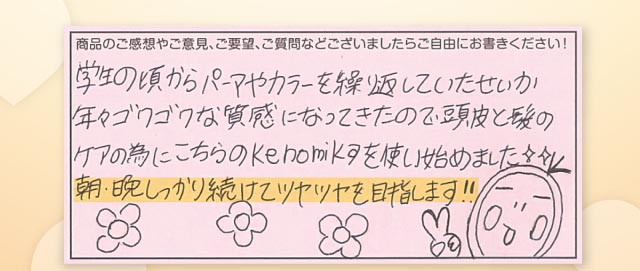 商品のご感想やご意見、ご要望、ご質問などございましたらご自由にお書きください!
学生の頃からパーマやカラーを繰り返していたせいか
年々ゴワゴワな質感になってきたので頭皮と髪の
ケアの為にこちらのkenomikaを使い始めました✧✧
朝・晩しっかり続けてツヤツヤを目指します!!